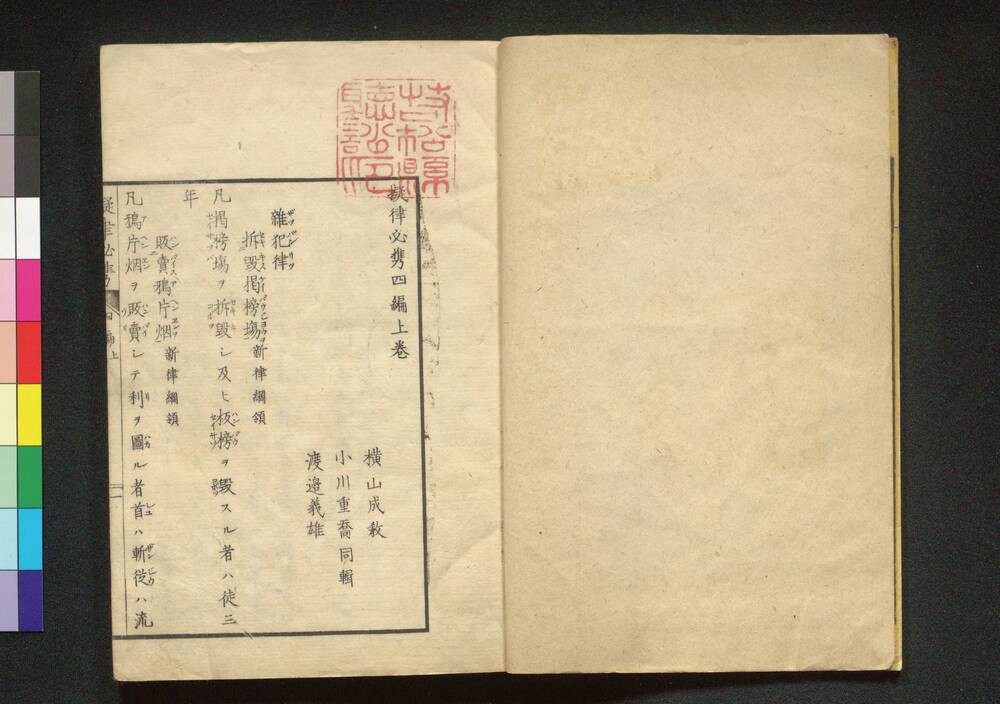 擬律必携四編上卷
橫山成教
小川重喬同輯
渡邉義雄
雜犯律
拆毀揭榜塲新律綱領
凡揭榜塲ヲ拆毀シ及ヒ板榜ヲ毀スル者ハ徒三
年
販賣鴉片烟新律綱領
凡鴉片烟ヲ販賣シテ利ヲ圖ル者首ハ斬從ハ流